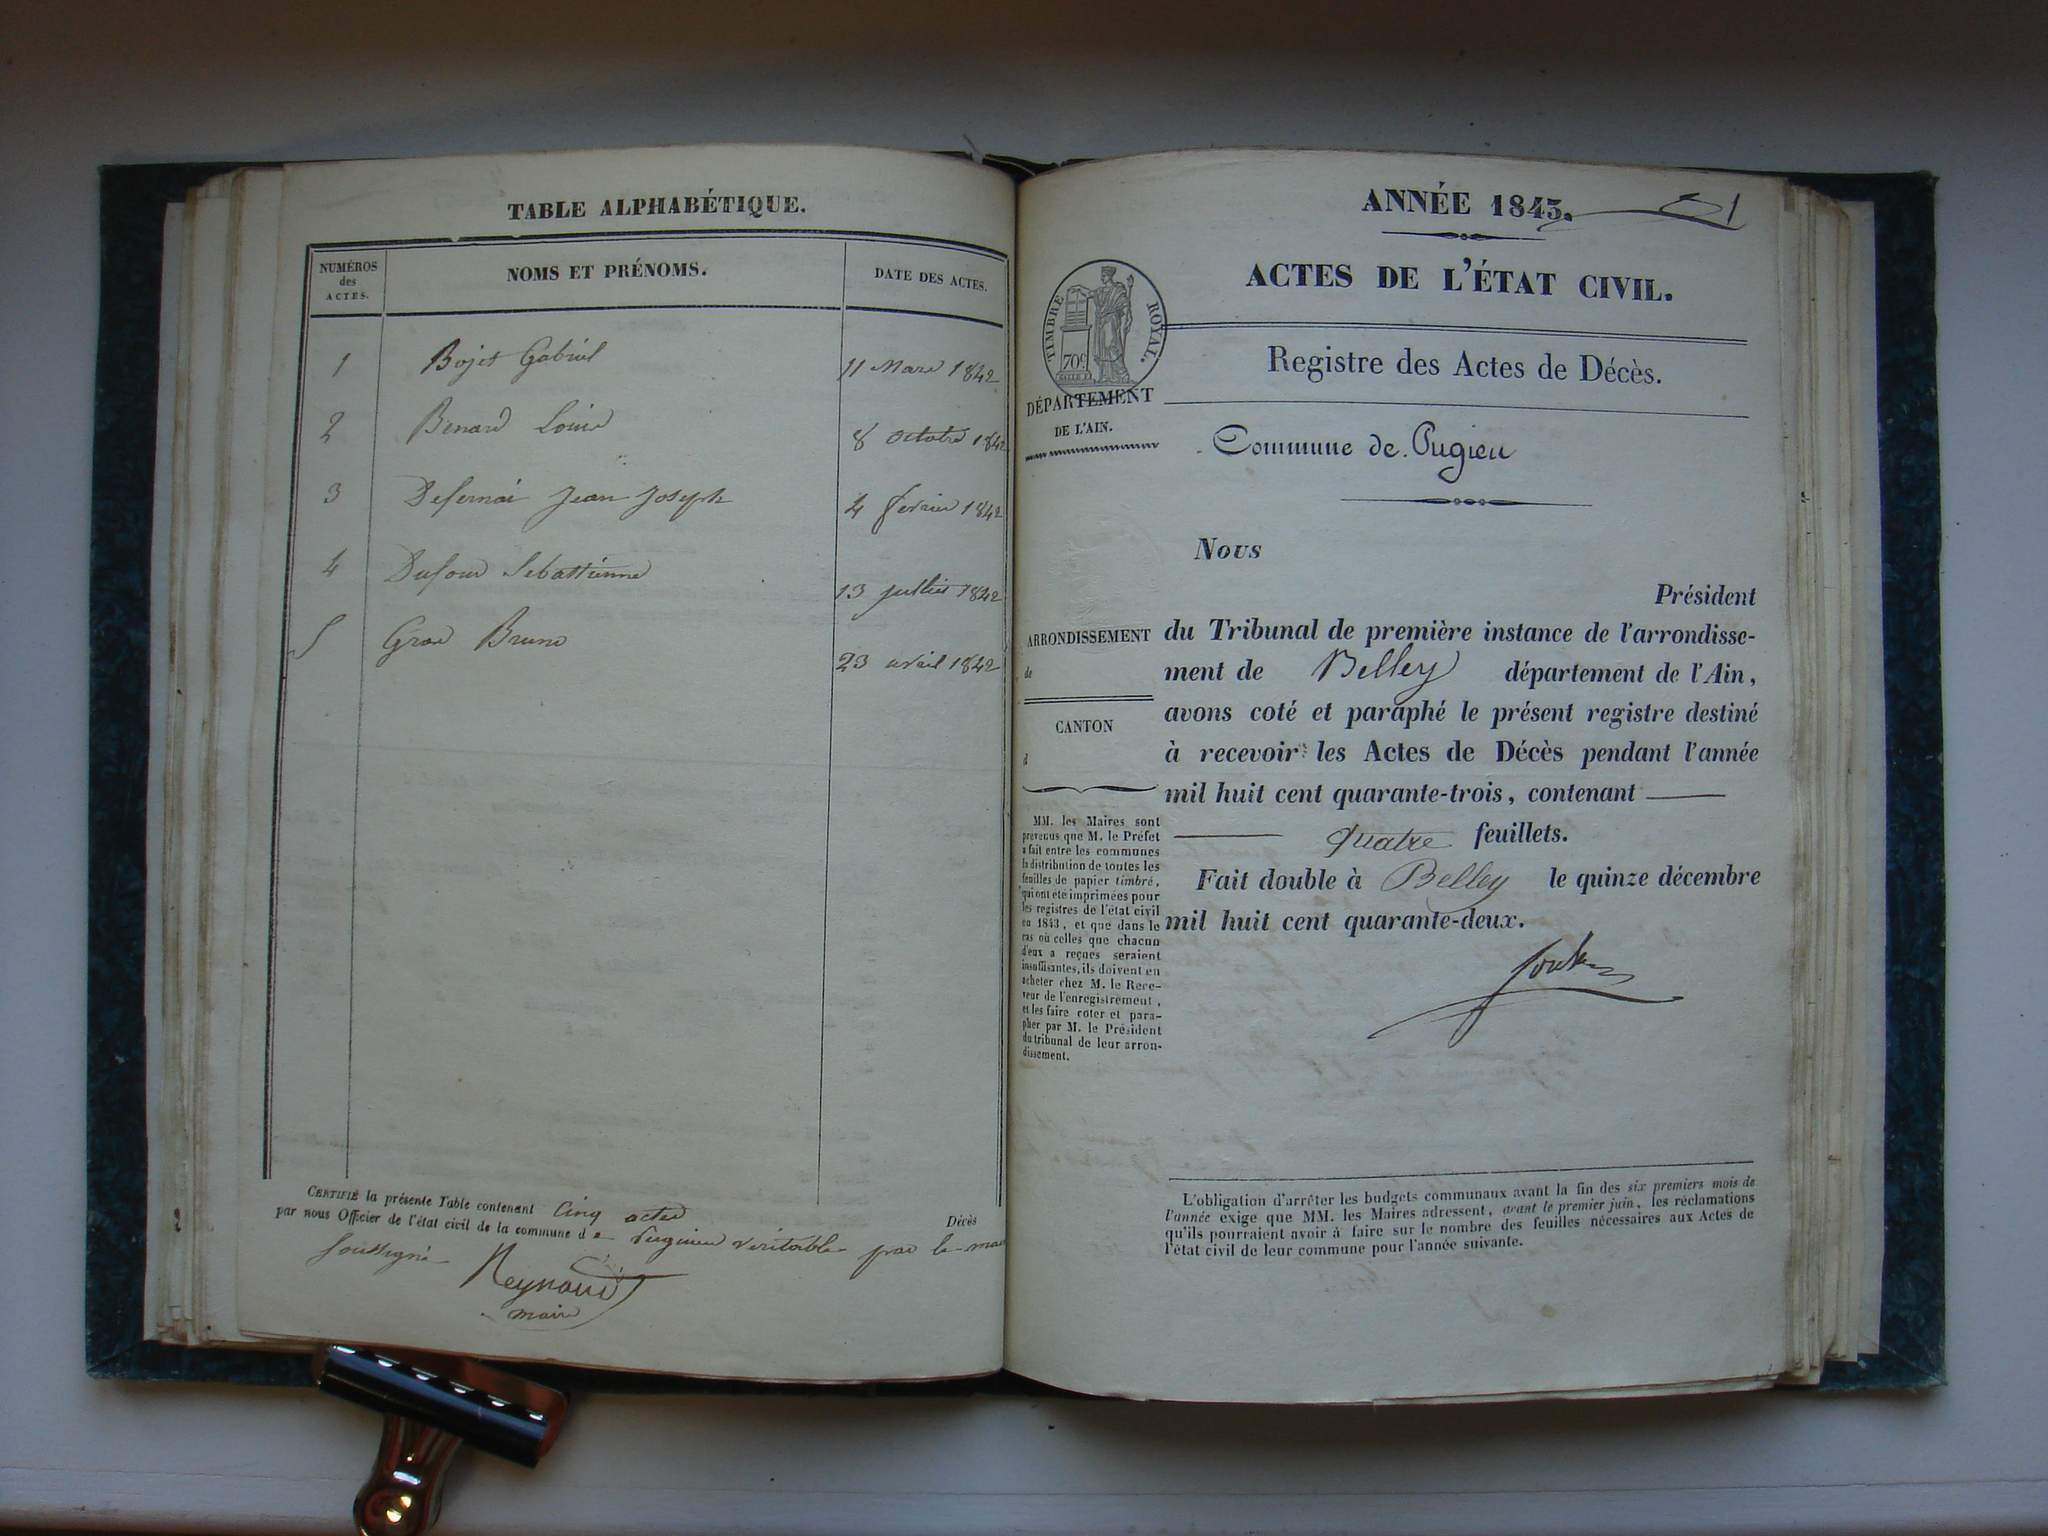 TABLE ALPHABÉTIQUE.
NUMÉROS des ACTES.
NOMS ET PRÉNOMS.
DATE DES ACTES.
1 Bojet Gabriel 11 Mars 1842
2 Benard Louise 8 octobre 1842
3 Defernai Jean Joseph 4 fevrier 1842
4 Dufour Sebastienne 13 juillet 1842
5 Gros Bruno 23 avril 1842
CERTIFIÉ la présente Table contenant Cinq actes Décès
par nous Officier de l'état civil de la commune de Pugieu véritable par le maire
soussigné
Reynaud
maire
2
ANNÉE 1843. 1
ACTES DE L'ÉTAT CIVIL.
TIMBRE ROYAL.
70c
Registre des Actes de Décès.
DÉPARTEMENT
DE L'AIN.
Commune de Pugieu
Nous
Président
ARRONDISSEMENT
de
CANTON
d
du Tribunal de première instance de l'arrondisse-
ment de Belley département de l'Ain,
avons coté et paraphé le présent registre destiné
à recevoir les Actes de Décès pendant l'année
mil huit cent quarante-trois, contenant
quatre feuillets.
Fait double à Belley le quinze décembre
mil huit cent quarante-deux.
MM. les Maires sont
prévenus que M. le Préfet
a fait entre les communes
la distribution de toutes les
feuilles de papier timbré,
qui ont été imprimées pour
les registres de l'état civil
en 1843, et que dans le
cas où celles que chacun
d'eux a reçues seraient
insuffisantes, ils doivent en
acheter chez M. le Rece-
veur de l'enregistrement,
et les faire coter et para-
pher par M. le Président
du tribunal de leur arron-
dissement.
L'obligation d'arrêter les budgets communaux avant la fin des six premiers mois de
l'année exige que MM. les Maires adressent, avant le premier juin, les réclamations
qu'ils pourraient avoir à faire sur le nombre des feuilles nécessaires aux Actes de
l'état civil de leur commune pour l'année suivante.